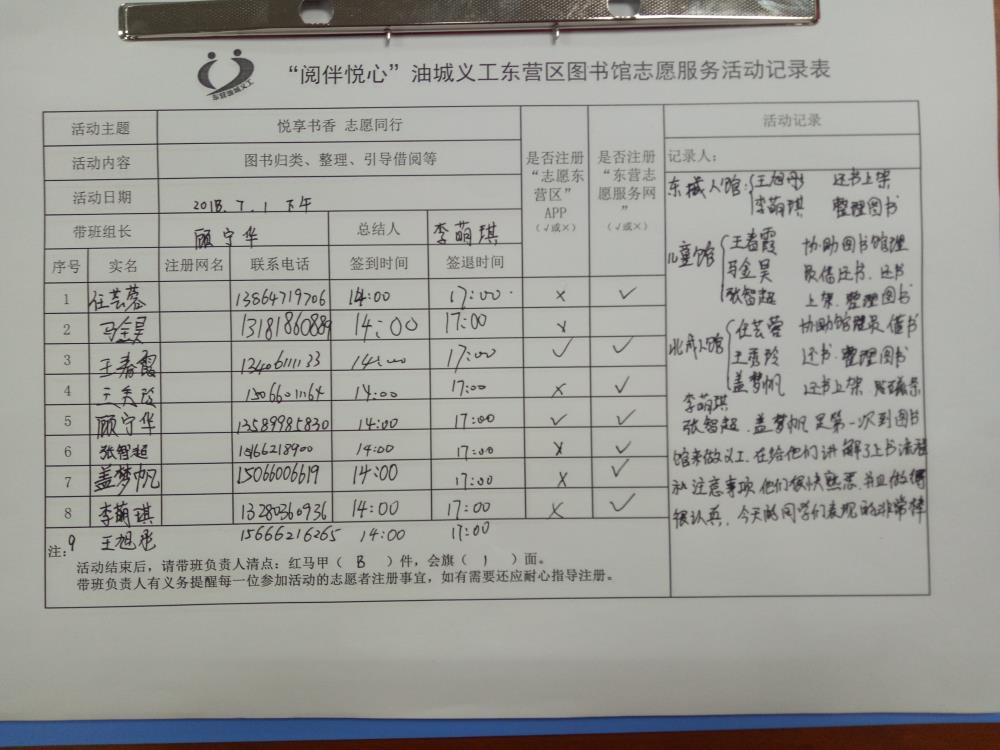 “阅伴悦心”油城义工东营区图书馆志愿服务活动记录表
东营油城义工
活动主题 悦享书香 志愿同行
活动内容 图书归类、整理、引导借阅等
活动日期 2018.7.1 下午
带班组长 顾宁华 总结人 李萌琪
是否注册“志愿东营区”APP(√或×)
是否注册“东营志愿服务网”(√或×)
序号 实名 注册网名 联系电话 签到时间 签退时间
1 任芸蓉 13864719706 14:00 17:00 × √
2 马金昊 13181860889 14:00 17:00 ×
3 王春霞 13406111133 14:00 17:00 √ √
4 王秀玲 15066011164 14:00 17:00 × √
5 顾宁华 13589985830 14:00 17:00 √ √
6 张智超 14:00 17:00 × √
7 盖梦帆 15066006619 14:00 17:00 × √
8 李萌琪 13280360936 14:00 17:00 × √
9 王旭彤 15666216265 14:00 17:00
注:
活动结束后，请带班负责人清点：红马甲（ B ）件，会旗（ 1 ）面。
带班负责人有义务提醒每一位参加活动的志愿者注册事宜，如有需要还应耐心指导注册。
活动记录
记录人:
东城人馆: 王旭彤 还书上架
李萌琪 整理图书
儿童馆 王春霞 协助图书馆理
马金昊 员借还书.还书
张智超 上架.整理图书
北成人馆 任芸蓉 协助馆理员.借书
王秀玲 还书.整理图书
盖梦帆 还书上架
李萌琪
张智超.盖梦帆是第一次到图书
馆来做义工.在给他们讲解了上书流程
和注意事项.他们很快熟悉.并且做得
很认真.今天的同学们表现的非常棒